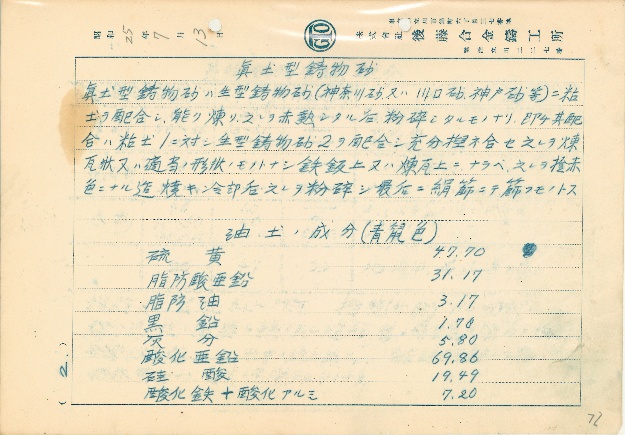 昭和25年7月13日
株式会社 後藤合金鋳工所
眞土型鋳物砂
眞土型鋳物砂ハ生型鋳物砂(神奈川砂又ハ川口砂、神戸砂等)ニ粘
土ヲ配合シ、能ク煉リ、之ヲ赤熱シタル后粉砕シタルモノナリ、即チ其配
合ハ粘土1ニ対シ生型鋳物砂2ヲ配合シ充分捏子合セ之ヲ煉
瓦状又ハ適当ノ形状ノモノトナシ鉄鈑上又ハ煉瓦上ニナラベ、之ヲ橙赤
色ニナル迄焼キ、冷却后之ヲ粉砕シ最后ニ絹篩ニテ篩フモノトス
油土ノ成分(青鼠色)
硫黄 47.70
脂肪酸亜鉛 31.17
脂肪油 3.17
黒鉛 1.78
灰分 5.80
酸化亜鉛 69.86
硅酸 19.49
酸化鉄+酸化アルミ 7.20
(2.)
72